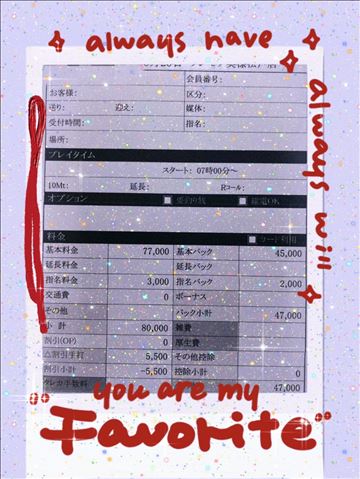 always have
always will
会員番号:
お客様:
区分:
送り:
迎え:
媒体:
受付時間:
指名:
場所:
プレイタイム
スタート: 07時00分～
10Mt:
延長:
Rコール:
オプション
料金
カード利用
基本料金 77,000 基本バック 45,000
延長料金 延長バック
指名料金 3,000 指名バック 2,000
交通費 0 ボーナス
その他 バック小計 47,000
小 計 80,000 雑費
割引(OP) 0 厚生費
△割引手打 5,500 その他控除
割引小計 -5,500 控除小計 0
47,000
you are my
Favorite